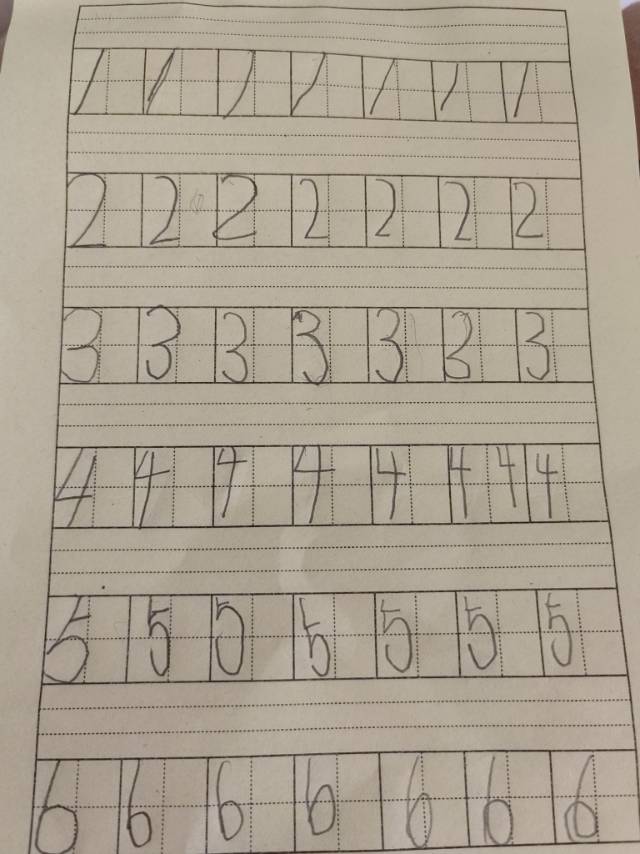 1 1 1 1 1 1 1
2 2 2 2 2 2 2
3 3 3 3 3 3 3
4 4 4 4 4 4 4 4
5 5 5 5 5 5 5
6 6 6 6 6 6 6